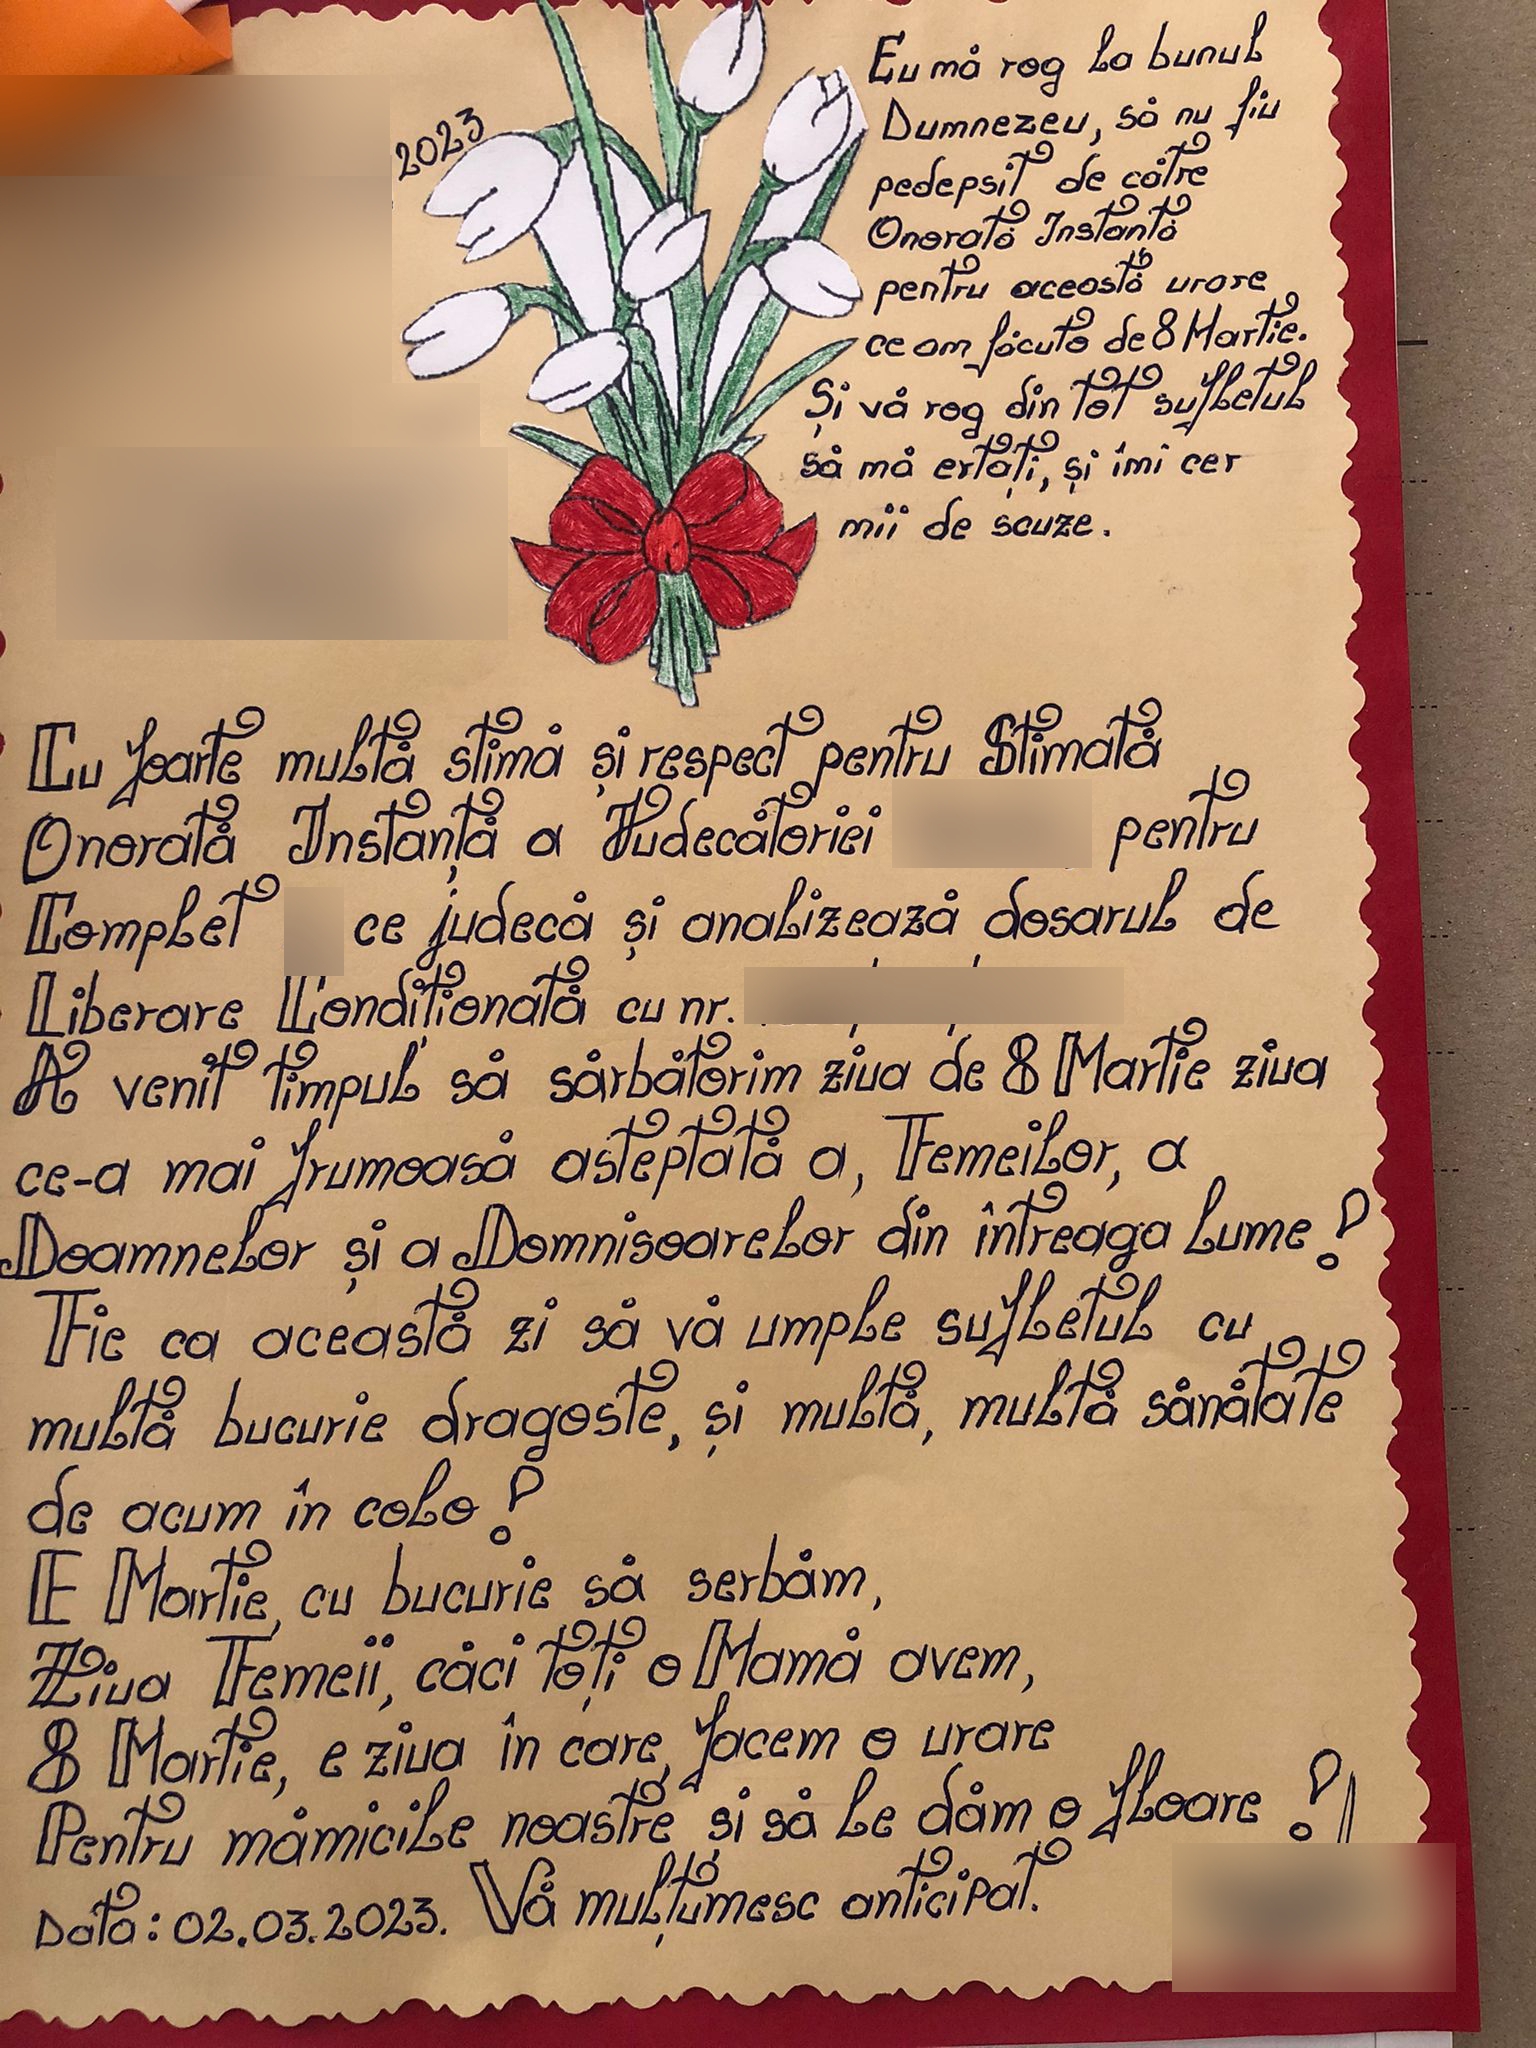 2023
Eu mă rog la bunul
Dumnezeu, să nu fiu
pedepsit de către
Onorată Instantă
pentru aceostă urore
ce om făcuto de 8 Martie.
Și vă rog din tot sufletul
să mă ertați, și îmi cer
mii de scuze.
Cu foarte multă stimă și respect pentru Stimată
Onorată Instanță a Judecătoriei pentru
Complet ce judecă și analizează dosarul de
Liberare Condiționată cu nr.
A venit timpul să sărbătorim ziua de 8 Martie ziua
ce-a mai frumoasă asteptată a, Femeilor, a
Doamnelor și a Domnisoarelor din întreaga lume!
Fie ca această zi să vă umple sufletul cu
multă bucurie dragoste, și multă, multă sănătate
de acum în colo!
E Martie, cu bucurie să serbăm,
Ziua Femeii, căci toți o Mamă avem,
8 Martie, e ziua în care, facem o urare
Pentru mămicile noastre și să le dăm o floare!
Data: 02.03.2023. Vă mulțumesc anticipat.